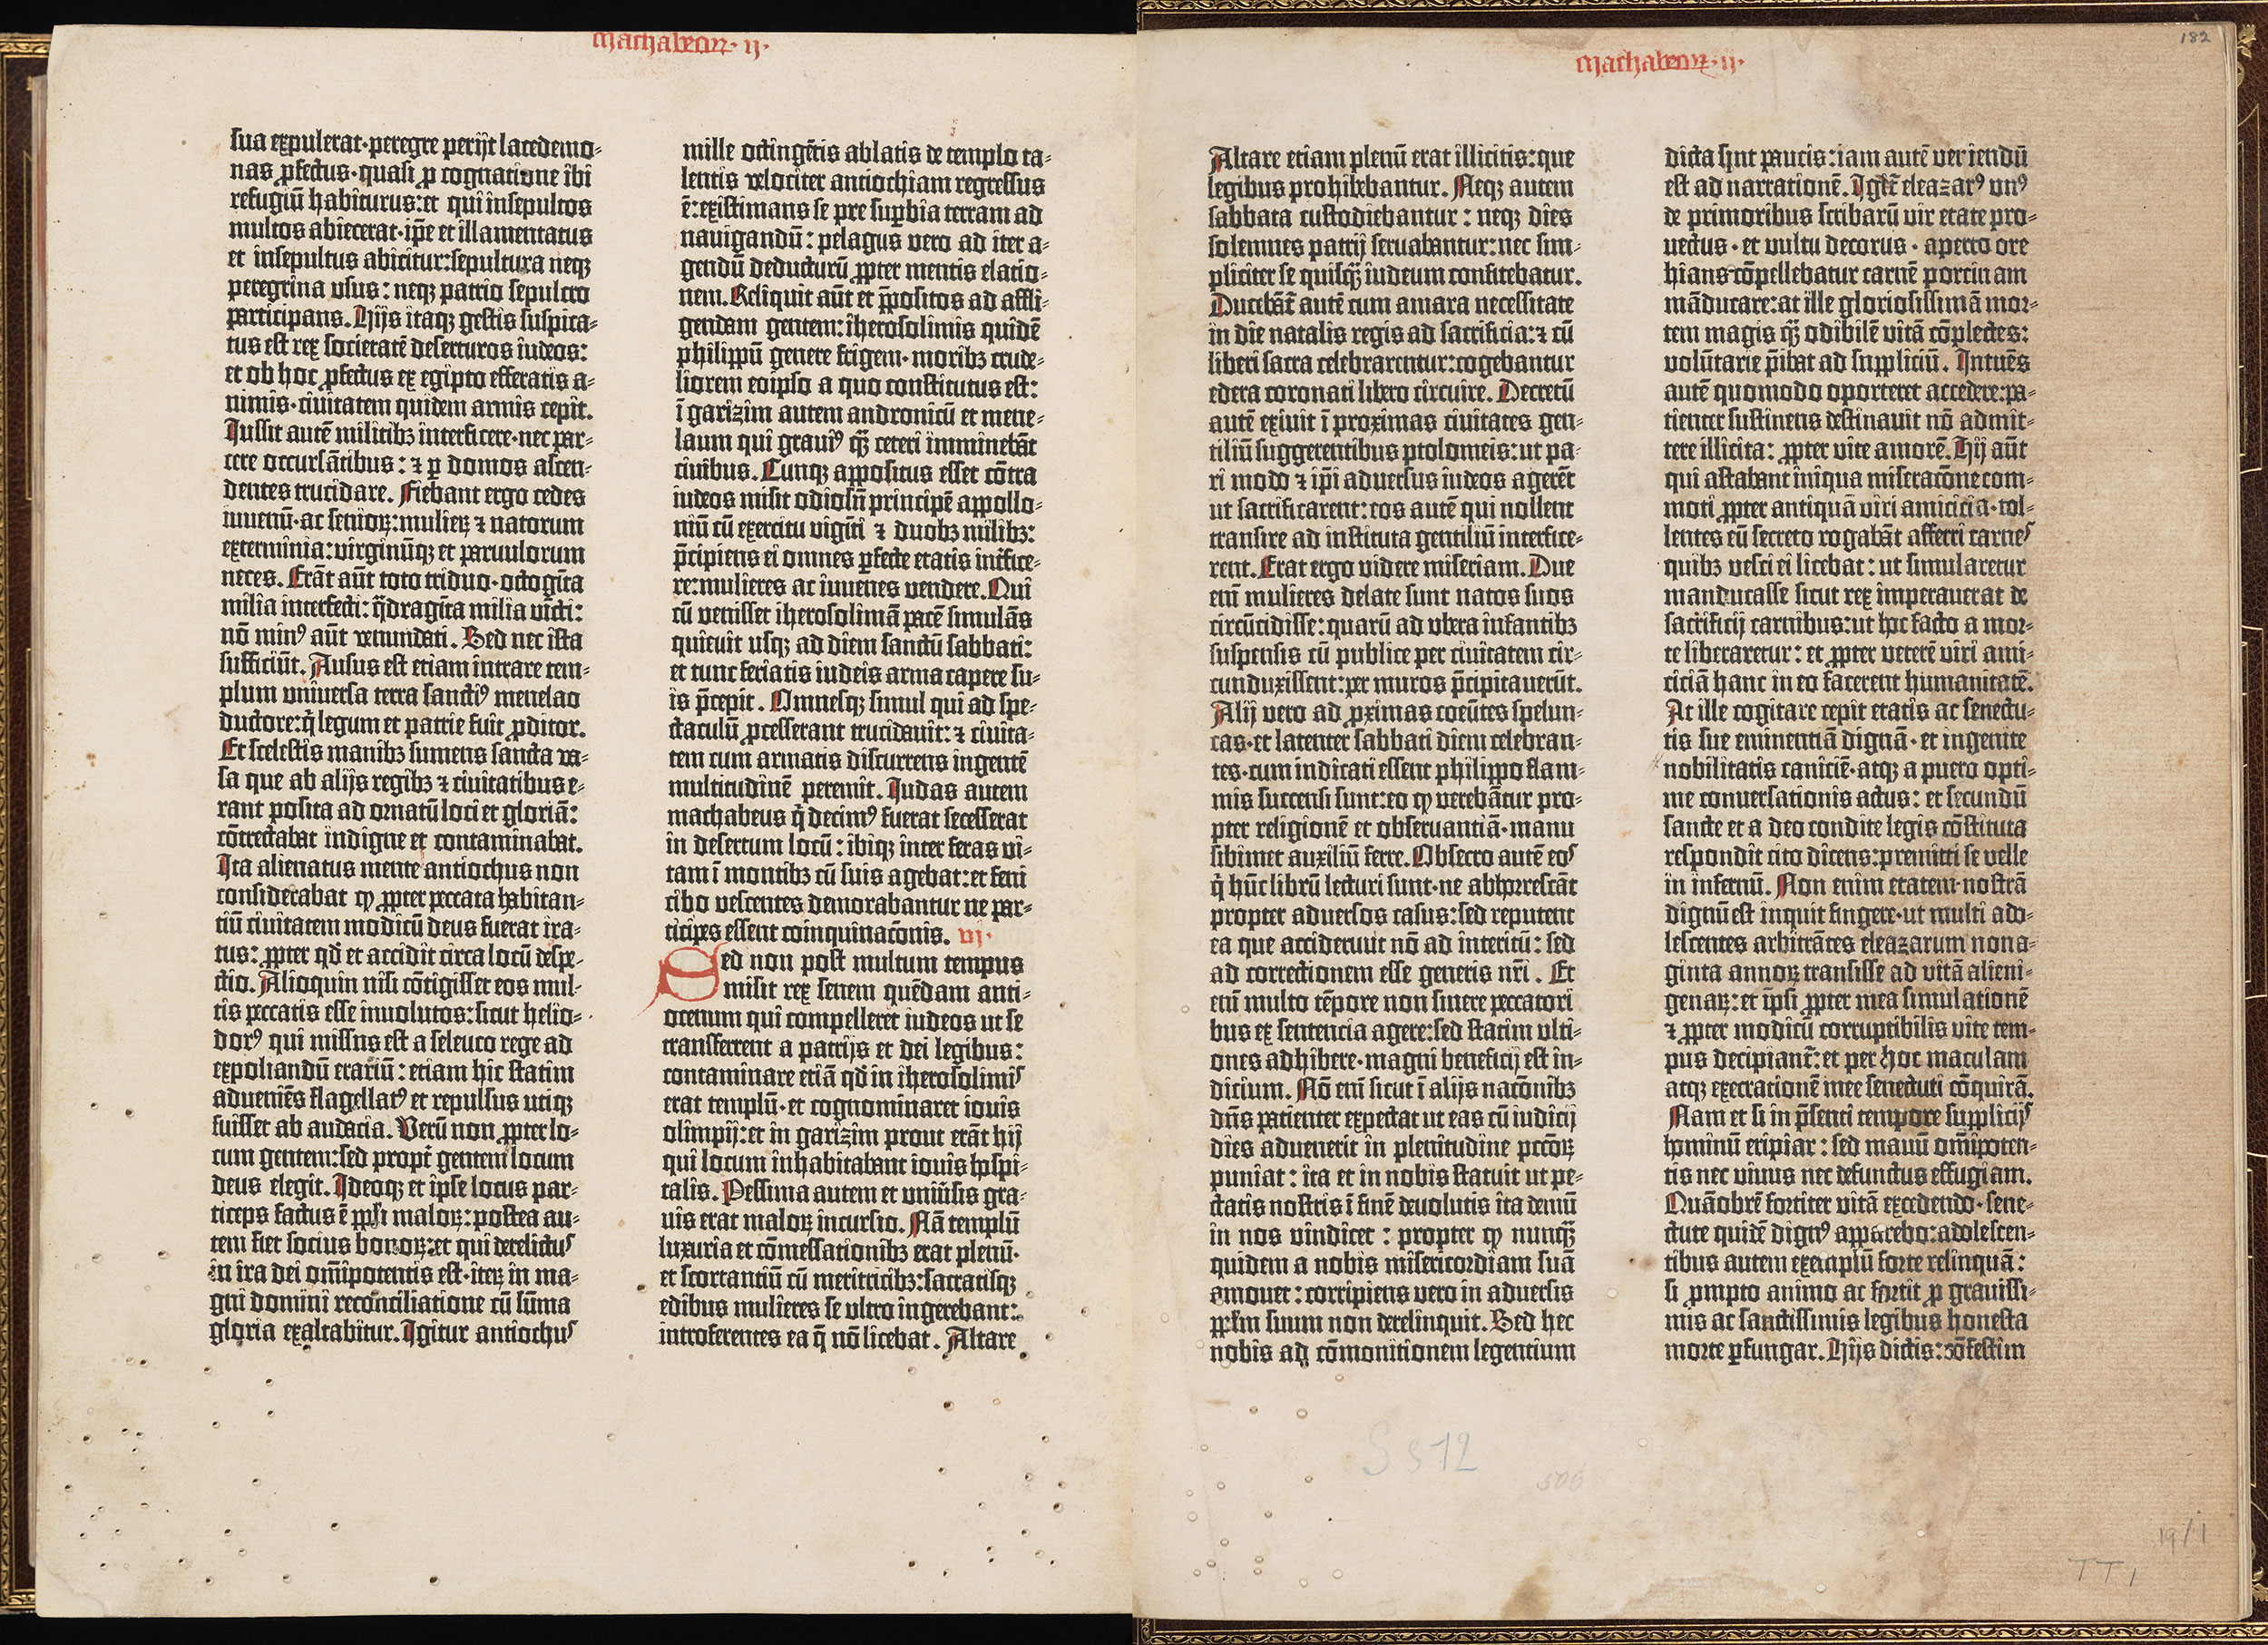 Machabeoꝝ· ij·
sua expulerat·peregre perijt lacedemo-
nas ꝓfectus·quasi ꝓ cognatione ibi
refugiū habiturus:et qui insepultos
multos abiecerat·ip̄e et illamentatus
et insepultus abicitur:sepultura neqꝫ
peregrina vsus: neqꝫ patrio sepulcro
participans. Hijs itaqꝫ gestis suspica-
tus est rex societatē deserturos iudeos:
et ob hoc ꝓfectus ex egipto efferatis a-
nimis·ciuitatem quidem armis cepit.
Iussit autē militibꝫ interficere·nec par-
cere occursātibus: ⁊ ꝑ domos ascen-
dentes trucidare. Fiebant ergo cedes
iuuenū·ac senioꝝ:mulieꝝ ⁊ natorum
exterminia:virginūqꝫ et paruulorum
neces. Erāt aūt toto triduo·octogīta
milia interfecti: q̄dragīta milia vīcti:
nō minꝰ aūt venundati. Sed nec ista
sufficiūt. Ausus est etiam intrare tem-
plum vniuersa terra sanctiꝰ menelao
ductore:q̇ legum et patrie fuit ꝓditor.
Et scelestis manibꝫ sumens sancta va-
sa que ab alijs regibꝫ ⁊ ciuitatibus e-
rant posita ad ornatū loci et gloriā:
cōtrectabat indigne et contaminabat.
Ita alienatus mente antiochus non
considerabat ꝙ ꝓpter peccata habitan-
tiū ciuitatem modicū deus fuerat ira-
tus: ꝓpter qd̄ et accidit circa locū despe-
ctio. Alioquin nisi cōtigisset eos mul-
tis peccatis esse inuolutos:sicut helio-
dorꝰ qui missus est a seleuco rege ad
expoliandū erariū: etiam hic statim
adueniēs flagellatꝰ et repulsus utiqꝫ
fuisset ab audacia. Verū non ꝓpter lo-
cum gentem:sed propt̄ gentem locum
deus elegit. Ideoqꝫ et ipse locus par-
ticeps factus ē ppl̄i maloꝝ:postea au-
tem fiet socius bonoꝝ:et qui derelictus
in ira dei om̄ipotentis est·iteꝝ in ma-
gni domini reconciliatione cū sūma
gloria exaltabitur. Igitur antiochus
mille octingētis ablatis de templo ta-
lentis velociter antiochiam regressus
ē:existimans se pre suꝑbia terram ad
nauigandū: pelagus vero ad iter a-
gendū deducturū ꝓpter mentis elatio-
nem. Reliquit aūt et p̄positos ad affli-
gendam gentem: iherosolimis quidē
philippū genere frigem·moribꝫ crude-
liorem eoipso a quo constitutus est:
ī garizim autem andronicū et mene-
laum qui grauiꝰ qꝫ̄ ceteri imminebāt
ciuibus. Cunqꝫ appositus esset cōtra
iudeos misit odiosū principē appollo-
niū cū exercitu vigīti ⁊ duobꝫ milibꝫ:
p̄cipiens ei omnes ꝑfecte etatis int̄fice-
re:mulieres ac iuuenes vendere. Qui
cū venisset iherosolimā pacē simulās
quieuit usqꝫ ad diem sanctū sabbati:
et tunc feriatis iudeis arma capere su-
is p̄cepit. Omnesqꝫ simul qui ad spe-
ctaculū ꝓcesserant trucidauit: ⁊ ciuita-
tem cum armatis discurrens ingentē
multitudinē peremit. Iudas autem
machabeus q̇ decimꝰ fuerat secesserat
in desertum locū: ibiqꝫ inter feras vi-
tam ī montibꝫ cū suis agebat:et feni
cibo vescentes demorabantur ne par-
ticipes essent coinquinac̄onis. vj·
Sed non post multum tempus
misit rex senem quēdam anti-
ocenum qui compelleret iudeos ut se
transferrent a patrijs et dei legibus:
contaminare etiā qd̄ in iherosolimis
erat templū·et cognominaret iouis
olimpij:et in garizim prout erāt hij
qui locum inhabitabant iouis hospi-
talis. Pessima autem et vniūsis gra-
uis erat maloꝝ incursio. Nā templū
luxuria et cōmessationibꝫ erat plenū·
et scortantiū cū meritricibꝫ:sacratisqꝫ
edibus mulieres se vltro ingerebant:
introferentes ea q̄ nō licebat. Altare
Machabeoꝝ·ij·
182
Altare etiam plenū erat illicitis:que
legibus prohibebantur. Neqꝫ autem
sabbata custodiebantur: neqꝫ dies
solemnes patrij seruabantur:nec sim-
pliciter se quisqꝫ̄ iudeum confitebatur.
Ducebāt̄ autē cum amara necessitate
in die natalis regis ad sacrificia:⁊ cū
liberi sacra celebrarentur:cogebantur
edera coronati libero circuire. Decretū
autē exiuit ī proximas ciuitates gen-
tiliū suggerentibus ptolomeis:ut pa-
ri modo ⁊ ip̄i aduersus iudeos agerēt
ut sacrificarent:eos autē qui nollent
transire ad instituta gentiliū interfice-
rent. Erat ergo videre miseriam. Due
enī mulieres delate sunt natos suos
circūcidisse:quarū ad vbera infantibꝫ
suspensis cū publice per ciuitatem cir-
cunduxissent:per muros p̄cipitauerūt.
Alij vero ad ꝓximas coeūtes spelun-
cas·et latenter sabbati diem celebran-
tes·cum indicati essent philippo flam-
mis succensi sunt:eo ꝙ verebātur pro-
pter religionē et obseruantiā·manu
sibimet auxiliū ferre. Obsecro autē eos
q̇ hūc librū lecturi sunt·ne abhorrescāt
propter aduersos casus:sed reputent
ea que acciderunt nō ad interitū: sed
ad correctionem esse generis nr̄i. Et
enī multo tēpore non sinere peccatori
bus ex sentencia agere:sed statim vlti-
ones adhibere·magni beneficij est in-
dicium. Nō enī sicut ī alijs nac̄onibꝫ
dn̄s patienter expectat ut eas cū iudicij
dies aduenerit in plenitudine pctōꝝ
puniat: ita et in nobis statuit ut pe-
ctatis nostris ī finē deuolutis ita demū
in nos vindicet: propter ꝙ nunqꝫ̄
quidem a nobis misericordiam suā
amouet: corripiens vero in aduersis
ppl̄m suum non derelinquit. Sed hec
nobis ad cōmonitionem legentium
dicta sint paucis:iam autē veniendū
est ad narrationē. Igit̄ eleazarꝰ vnꝰ
de primoribus scribarū vir etate pro-
uectus·et vultu decorus·aperto ore
hians cōpellebatur carnē porcinam
māducare:at ille gloriosissimā mor-
tem magis qꝫ̄ odibilē vitā cōplectēs:
volūtarie p̄ibat ad suppliciū. Intuēs
autē quomodo oporteret accedere:pa-
tienter sustinens destinauit nō admit-
tere illicita: ꝓpter vite amorē. Hij aūt
qui astabant iniqua miserac̄one com-
moti ꝓpter antiquā viri amicicia·tol-
lentes eū secreto rogabāt afferri carnes
quibꝫ vesci ei licebat: ut simularetur
manducasse sicut rex imperauerat de
sacrificij carnibus:ut hoc facto a mor-
te liberaretur: et ꝓpter veterē viri ami-
ciciā hanc in eo facerent humanitatē.
At ille cogitare cepit etatis ac senectu-
tis sue eminentiā dignā·et ingenite
nobilitatis caniciē·atqꝫ a puero opti-
me conuersationis actus: et secundū
sancte et a deo condite legis cōstituta
respondit cito dicens:premitti se velle
in infernū. Non enim etatem nostrā
dignū est inquit fingere·ut multi ado-
lescentes arbitrātes eleazarum nona-
ginta annoꝝ transisse ad vitā alieni-
genaꝝ:et ip̄si ꝓpter mea simulationē
⁊ ꝓpter modicū corruptibilis vite tem-
pus decipiant̄:et per hoc maculam
atqꝫ execrationē mee senectuti cōquirā.
Nam et si in p̄senti tempore supplicijs
hominū eripiar: sed manū om̄ipoten-
tis nec viuus nec defunctus effugiam.
Quāobrē fortiter vitā excedendo·sene-
ctute quidē dignꝰ apparebo:adolescen-
tibus autem exemplū forte relinquā:
si ꝓmpto animo ac fortit̄ ꝓ grauissi-
mis ac sanctissimis legibus honesta
morte ꝑfungar. Hijs dictis:cōfestim
Ss12
506
19/1
TT1